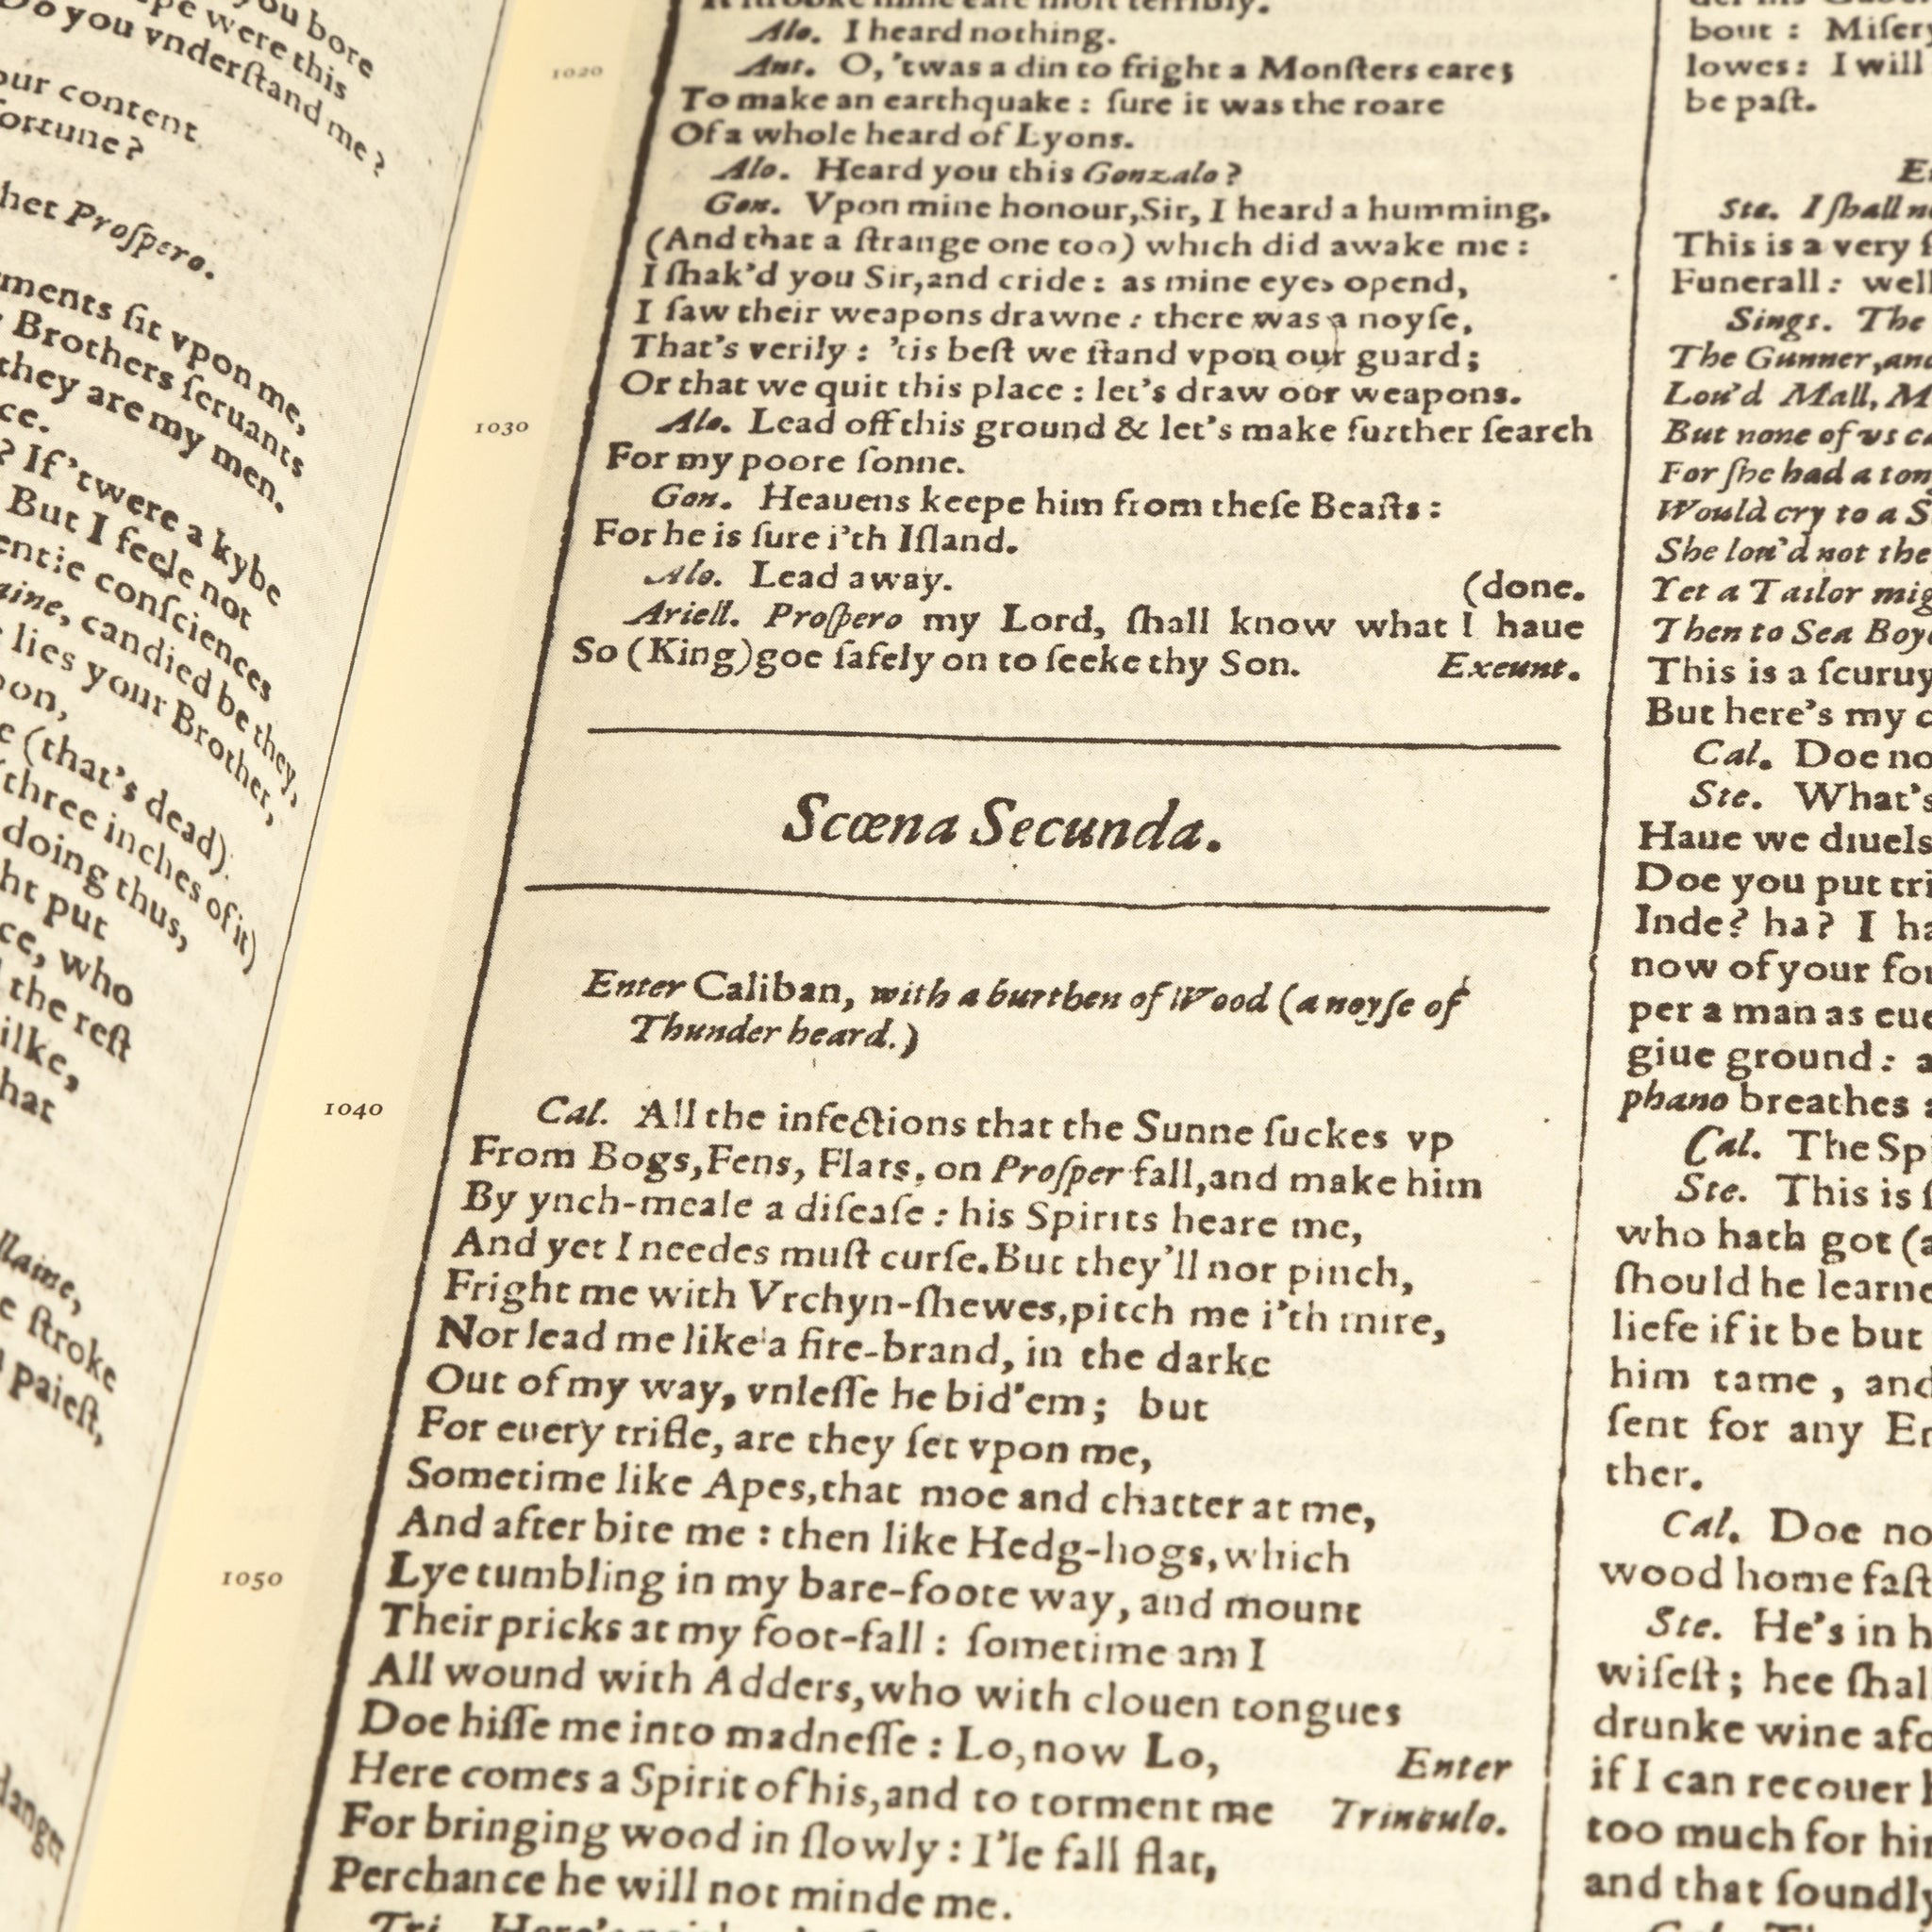 you bore
were this
Do you vnderſtand me?
our content
ortune?
Proſpero.
ments ſit vpon me,
Brothers ſeruants
they are my men.
ce.
? If 'twere a kybe
But I feele not
entie conſciences
candied be they,
lies your Brother,
oon,
(that's dead)
three inches of it)
doing thus,
ht put
ce, who
the reſt
ilke,
hat
ſtroke
paieſt,
Alo. I heard nothing.
1020
Ant. O, 'twas a din to fright a Monſters eare;
To make an earthquake : ſure it was the roare
Of a whole heard of Lyons.
Alo. Heard you this Gonzalo?
Gon. Vpon mine honour,Sir, I heard a humming,
(And that a ſtrange one too) which did awake me :
I ſhak'd you Sir,and cride : as mine eyes opend,
I ſaw their weapons drawne : there was a noyſe,
That's verily : 'tis beſt we ſtand vpon our guard;
Or that we quit this place : let's draw our weapons.
1030
Alo. Lead off this ground & let's make further ſearch
For my poore ſonne.
Gon. Heauens keepe him from theſe Beaſts :
For he is ſure i'th Iſland.
Alo. Lead away. (done.
Ariell. Proſpero my Lord, ſhall know what I haue
So (King) goe ſafely on to ſeeke thy Son. Exeunt.
Scœna Secunda.
Enter Caliban, with a burthen of Wood (a noyſe of
Thunder heard.)
1040
Cal. All the infections that the Sunne ſuckes vp
From Bogs,Fens, Flats, on Proſper fall,and make him
By ynch-meale a diſeaſe : his Spirits heare me,
And yet I needes muſt curſe.But they'll nor pinch,
Fright me with Vrchyn-ſhewes,pitch me i'th mire,
Nor lead me like a fire-brand, in the darke
Out of my way, vnleſſe he bid'em; but
For euery trifle, are they ſet vpon me,
Sometime like Apes,that moe and chatter at me,
And after bite me : then like Hedg-hogs,which
1050
Lye tumbling in my bare-foote way, and mount
Their pricks at my foot-fall : ſometime am I
All wound with Adders,who with clouen tongues
Doe hiſſe me into madneſſe : Lo,now Lo, Enter
Here comes a Spirit of his,and to torment me Trinculo.
For bringing wood in ſlowly : I'le fall flat,
Perchance he will not minde me.
bout : Miſery
lowes : I will
be paſt.
Ste. I ſhall
This is a very
Funerall : well
Sings. The
The Gunner,and
Lou'd Mall, M
But none of vs
For ſhe had a
Would cry to a S
She lou'd not the
Yet a Tailor
Then to Sea
This is a ſcuruy
But here's my
Cal. Doe
Ste. What's
Haue we diuels
Doe you put
Inde? ha? I
now of your
per a man as
giue ground :
phano breathes
Cal. The
Ste. This is
who hath got
ſhould he learne
liefe if it be but
him tame , and
ſent for any
ther.
Cal. Doe
wood home
Ste. He's in
wiſeſt; hee
drunke wine
if I can recouer
too much for
and that ſoundly